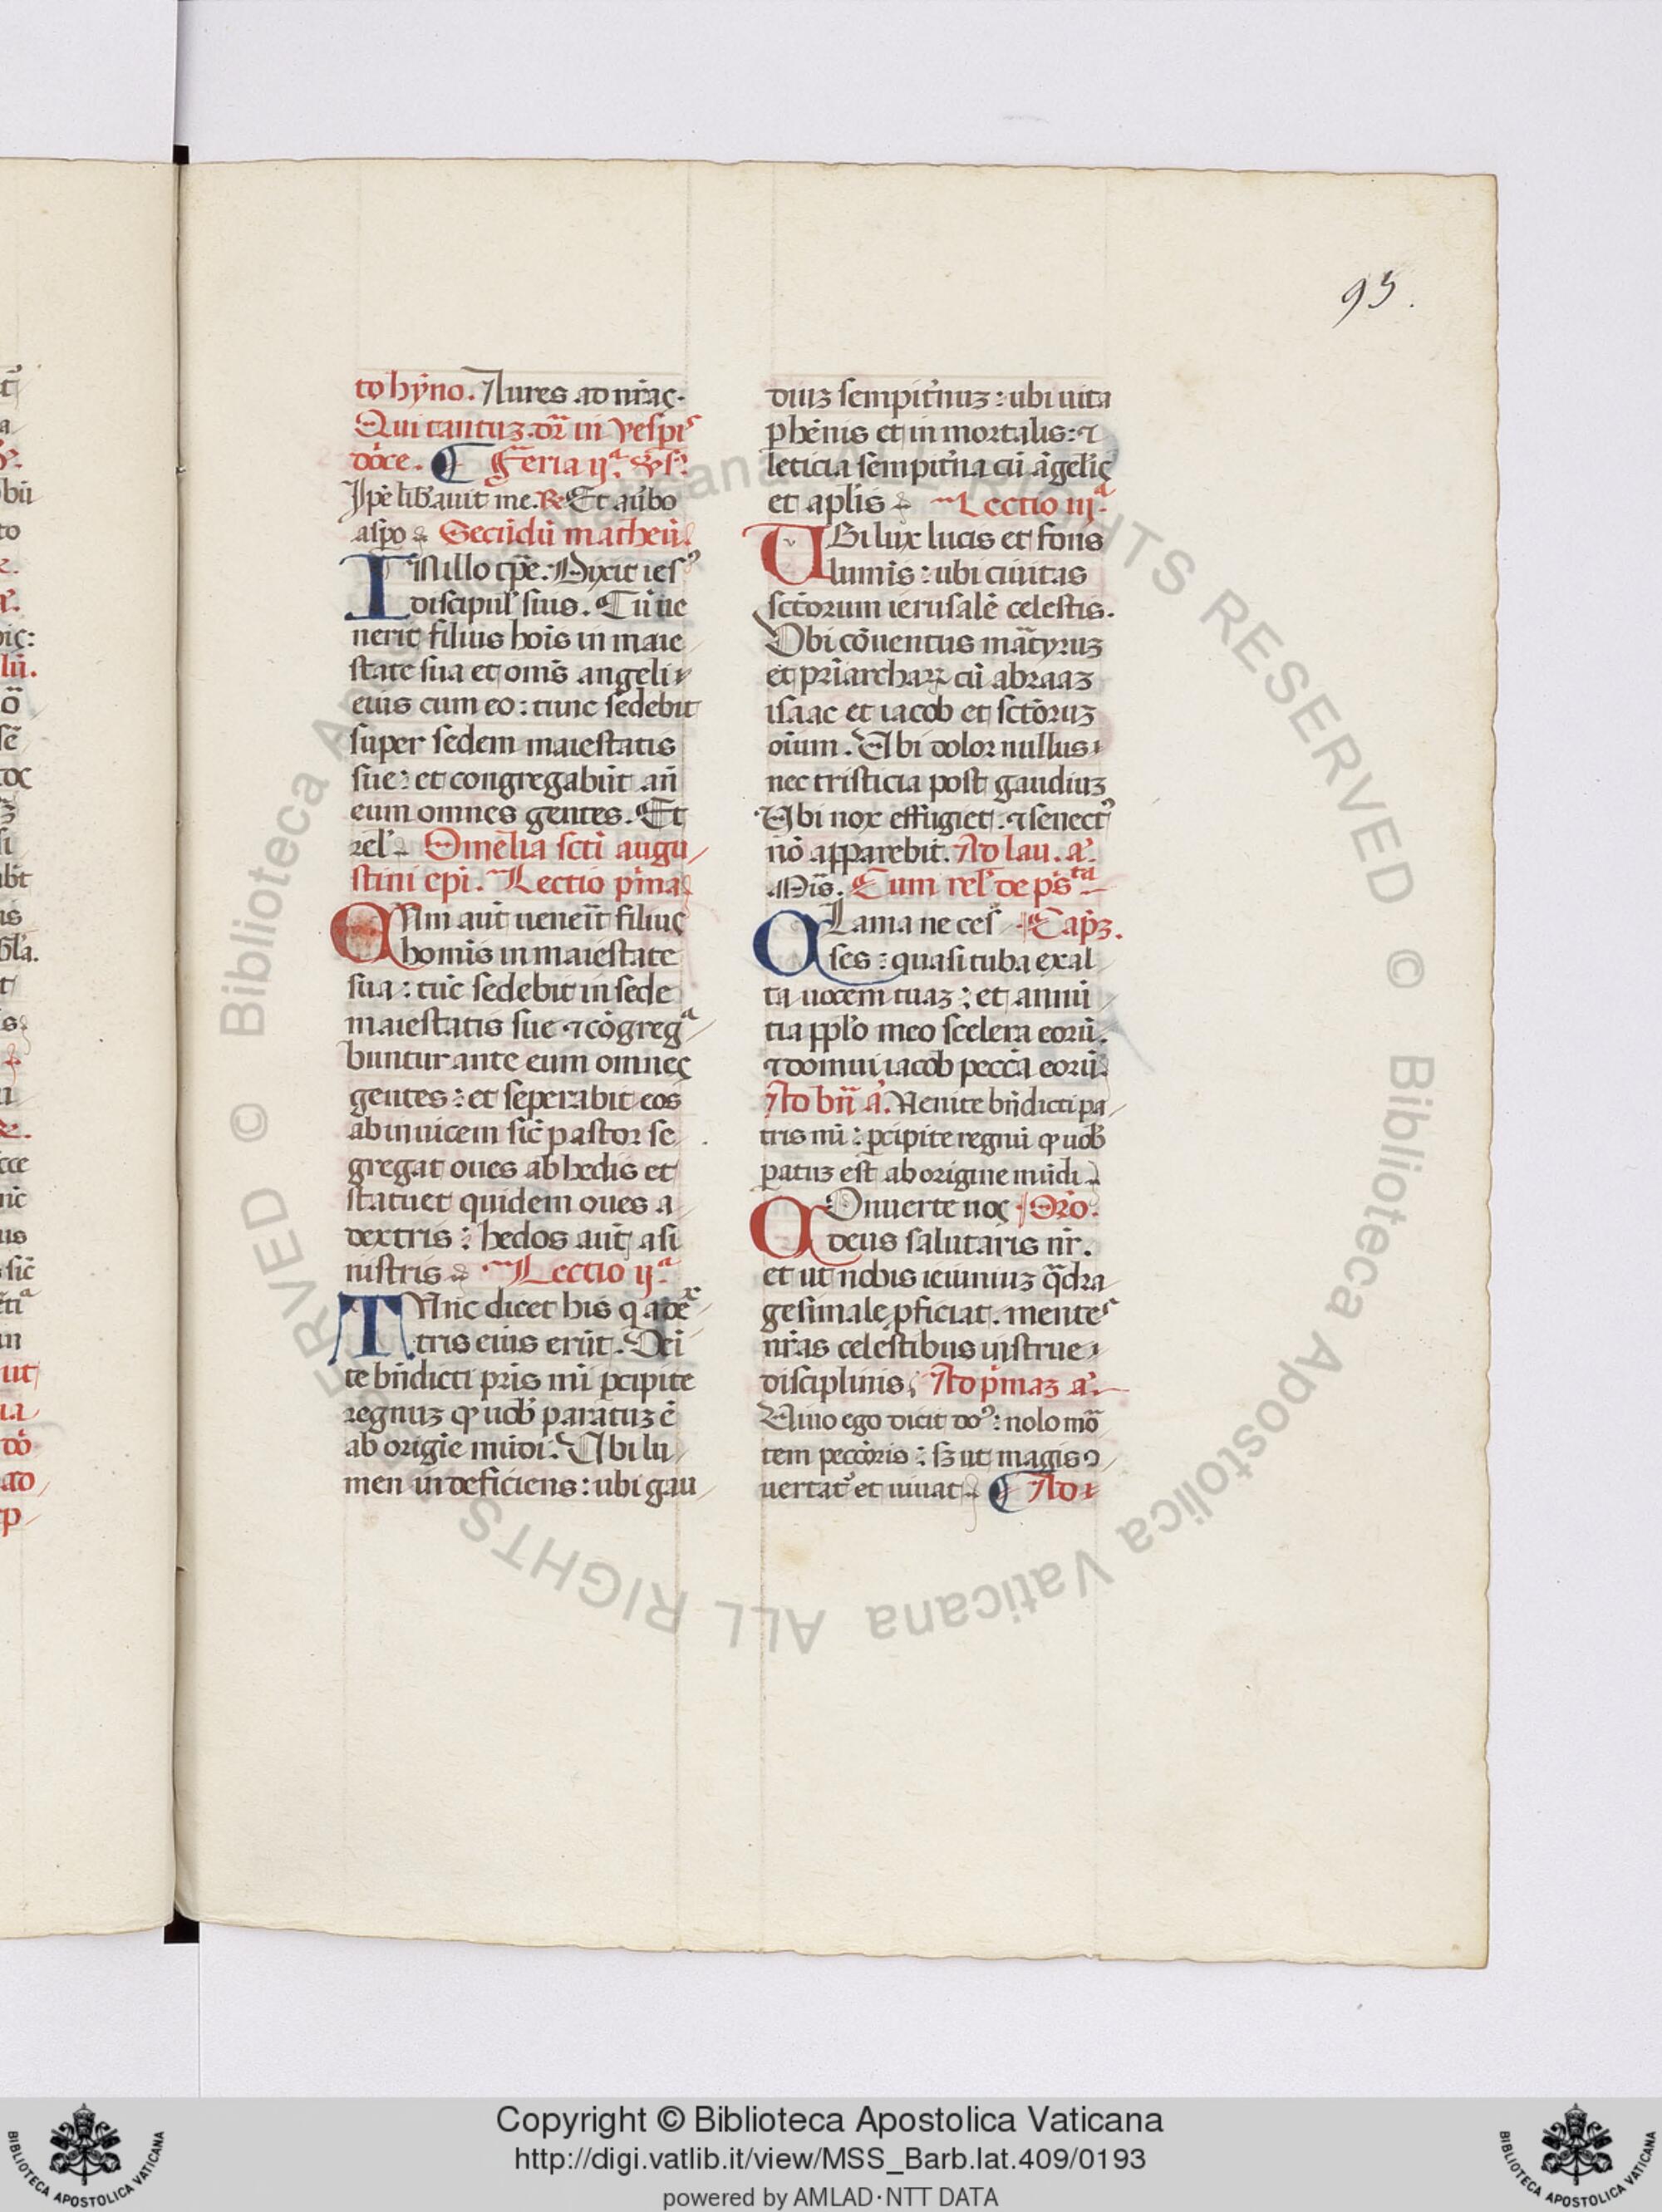 95.
to hỹno. Aures ad nr̃as.
Qui tantuz dr̃ in vesꝑis
dõce. ¶ Feria ijª. v̉s.
Ipẽ lib̉auit me. ℞ Et a v̉bo
asꝑo Secũdũ matheũ.
IN illo tꝑe. Dixit ies᾿
discipul᾿ suis. Cũ ue
nerit filius hoĩs in maie
state sua et om̃s angeli
eius cum eo: tunc sedebit
super sedem maiestatis
sue: et congregabũt añ
eum omnes gentes. Et
rel᾿ Omelia scti augu
stini epi. Lectio p̃ma
CVm aut̃ uenerit filius
homĩs in maiestate
sua: tũc sedebit in sede
maiestatis sue ⁊ cõgregª
buntur ante eum omnes
gentes: et seperabit eos
ab inuicem sic̃ pastor se
gregat oues ab hedis et
statuet quidem oues a
dextris: hedos aut̃ a si
nistris Lectio ijª.
TVnc dicet his q̃ a dex
tris eius erũt. Ueĩ
te bñdicti pr̃is mĩ ꝑcipite
regnuz qᷓ uob̃ paratuz ẽ
ab origĩe mũdi. Ubi lu
men indeficiens: ubi gau
diuz sempit̉nuz: ubi uita
ꝑhẽnis et inmortalis: ⁊
leticia sempit̉na cũ ãgelis
et apl̃is Lectio iijª.
UBi lux lucis et fons
lumĩs: ubi ciuitas
sctõrum ierusalẽ celestis.
Ubi cõuentus mãtyruz
et pr̃iarcharꝝ cũ abraaz
isaac et iacob et sctõruz
oĩum. Ubi dolor nullus
nec tristicia post gaudiuz
Ubi nox effugiet. ⁊ senect᾿
nõ apparebit. Ad lau. a᾿.
Mĩs. Cum rel᾿ de ps̃ta
CLama ne ces Capz.
ses: quasi tuba exal
ta uocem tuaz: et annũ
tia ppl̃o meo scelera eorũ.
⁊ domui iacob peccã eorũ.
Ad bñ a᾿. Venite bñdicti pa
tris mĩ: ꝑcipite regnũ qᷓ uob̃
ꝑatuz est ab origine mũdi
COnuerte nos Orõ.
deus salutaris nr̃.
et ut nobis ieiuniuz q̃dra
gesimale ꝓficiat. mentes
nr̃as celestibus instrue
disciplinis. Ad p̃maz a᾿.
Viuo ego dicit do᾿: nolo mõ
tem peccõris: sz ut magis ꝯ
uertat̉ et uiuat ¶ Ad
© Biblioteca Apostolica Vaticana ALL RIGHTS RESERVED © Biblioteca Apostolica Vaticana ALL RIGHTS RESERVED
Copyright © Biblioteca Apostolica Vaticana
http://digi.vatlib.it/view/MSS_Barb.lat.409/0193
powered by AMLAD·NTT DATA
BIBLIOTECA APOSTOLICA VATICANA
BIBLIOTECA APOSTOLICA VATICANA